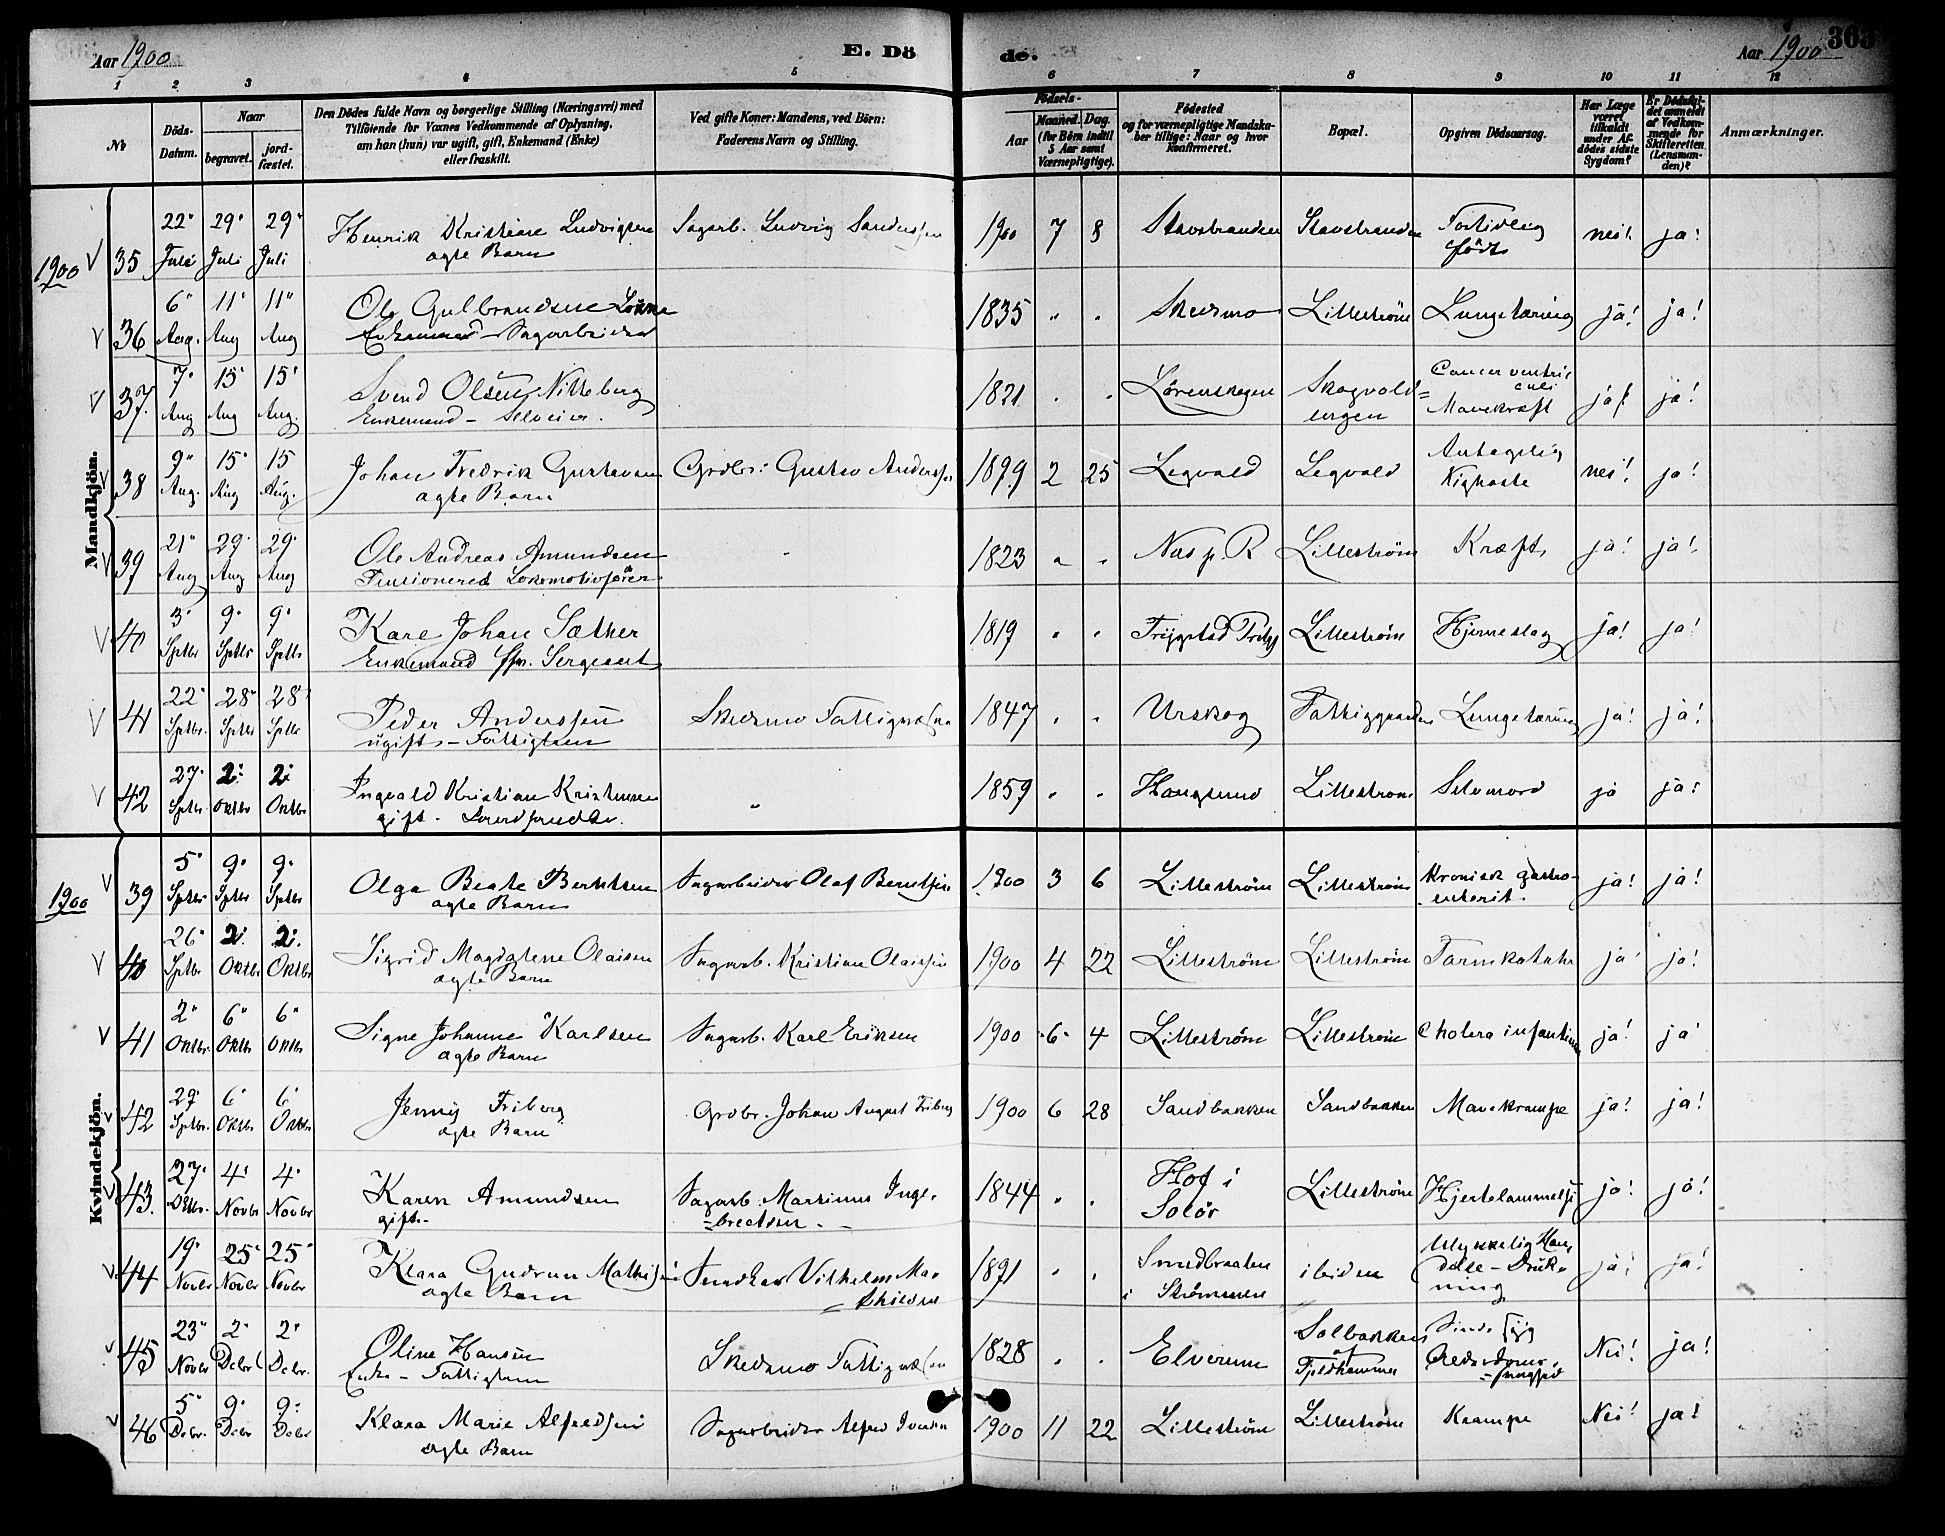 Aar 1900 E. Dö de. Aar 1900 363
1 2 3 4 5 6 7 8 9 10 11 12
No
Döds-Datum.
Naar
begravet.
jordfæstet.
Den Dödes fulde Navn og borgerlige Stilling (Næringsvei) med
Tilföiende for Voxnes Vedkommende af Oplysning,
om han (hun) var ugift, gift, Enkemand (Enke)
eller fraskilt.
Ved gifte Koner: Mandens, ved Börn:
Faderens Navn og Stilling.
Födsels-
Aar
Maaned. Dag.
(for Börn indtil
5 Aar samt
Værnepligtige).
Födested
og for værnepligtige Mandska-
ber tillige: Naar og hvor
konfirmeret.
Bopæl.
Opgiven Dödsaarsag.
Har Læge
været
tilkaldt
under Af-
dödes sidste
Sygdom?
Er Dödsfal-
det anmeldt
af Vedkom-
mende for
Skifteretten
(Lensman-
den)?
Anmærkninger.
Mandkjön.
1900
35 22 Juli 29 Juli 29 Juli Henrik Kristian Ludvigsen Sagarb. Ludvig Sanderssen 1900 7 8 Stavstranden Stavstranden Fortidlig nei! ja!
ægte Barn født
36 6 Aug. 11 Aug 11 Aug Ole Gulbrandsen 1835 " " Skedsmo Lillestrøm Lungetæring ja! ja!
Enkemand Sagarbeider
37. 7 Aug 15 Aug 15 Aug. Svend Olsen Nitteberg 1821 " " Lørenskogen Skogvold= Cancer ventri= ja! ja!
Enkemand – Selveier. engen culi Mavekræft
38 9 Aug. 15 Aug 15 Aug. Johan Fredrik Gustavsen Grdbr: Gustav Anderssen 1899 2 25 Legvold Legvold Antagelig nei! ja!
ægte Barn Kighoste
39 21 Aug 29 Aug 29 Aug Ole Andreas Amundsen 1823 " " Næs p. R. Lillestrøm Kræft ja! ja!
Pensioneret Lokomotivfører
40 3 Sptbr 9 Sptbr 9 Sptbr Kare Johan Sæther 1819 " " Trygstad Lillestrøm Hjerneslag ja! ja!
Enkemand Sergeant
41 22 Sptbr. 28 Sptbr 28 Sptbr Peder Anderssen Skedsmo Fattigvæsen 1847 " " Urskog Fattiggaarden Lungetæring ja! ja!
ugift – Fattiglem
42 27 Sptbr 2 Oktbr 2 Oktbr Ingvald Kristian Kristensen " 1859 " " Haugsund Lillestrøm Selvmord ja ja!
gift.
Kvindekjön.
1900
39 5 Sptbr 9 Sptbr 9 Sptbr Olga Beate Berntsen Sagarbeider Olaf Berntsen 1900 3 6 Lillestrøm Lillestrøm Kronisk gastro- ja! ja!
ægte Barn enterit.
40 26 Sptbr 2 Oktbr 2 Oktbr Sigrid Magdalene Olaisen Sagarb. Kristian Olaissen 1900 4 22 Lillestrøm Lillestrøm Tarmkatahr ja! ja!
ægte Barn
41 2 Oktbr. 6 Oktbr 6 Oktbr Signe Johanne Karlsen Sagarb. Karl Eriksen 1900 6 4 Lillestrøm Lillestrøm Cholera infantium ja! ja!
ægte Barn
42 29 Sptbr. 6 Oktbr 6 Oktbr Jenny Friberg Grdbr. Johan August Friberg 1900 6 28 Sandbakken Sandbakken Mavekrampe ja! ja!
ægte Barn
43. 27 Oktbr. 4 Novbr 4 Novbr Karen Amundsen Sagarb. Martinus Inge- 1844 " " Hof i Lillestrøm Hjertelammelse ja! ja!
gift – =bretsen. – Solør
44 19 Novbr 25 Novbr 25 Novbr Klara Gudrun Mathisen Vilhelm Ma- 1891 " " Smedbraaten ibiden Ulykkelig Hæn- ja! ja!
ægte Barn =thisen i Strømmen delse – Druk-
ning
45 23 Novbr 2 Debr 2 Debr. Oline Hansen Skedsmo Fattigvæsen 1828 " " Elverum Solbakken Nei! ja!
Enke – Fattiglem af Fjeldhammer Alderdoms-
=svaghed
46 5 Debr. 9 Debr 9 Debr Klara Marie Alfredsen Sagarbeider Alfred Iversen 1900 11 22 Lillestrøm Lillestrøm Krampe Nei! ja!
ægte Barn